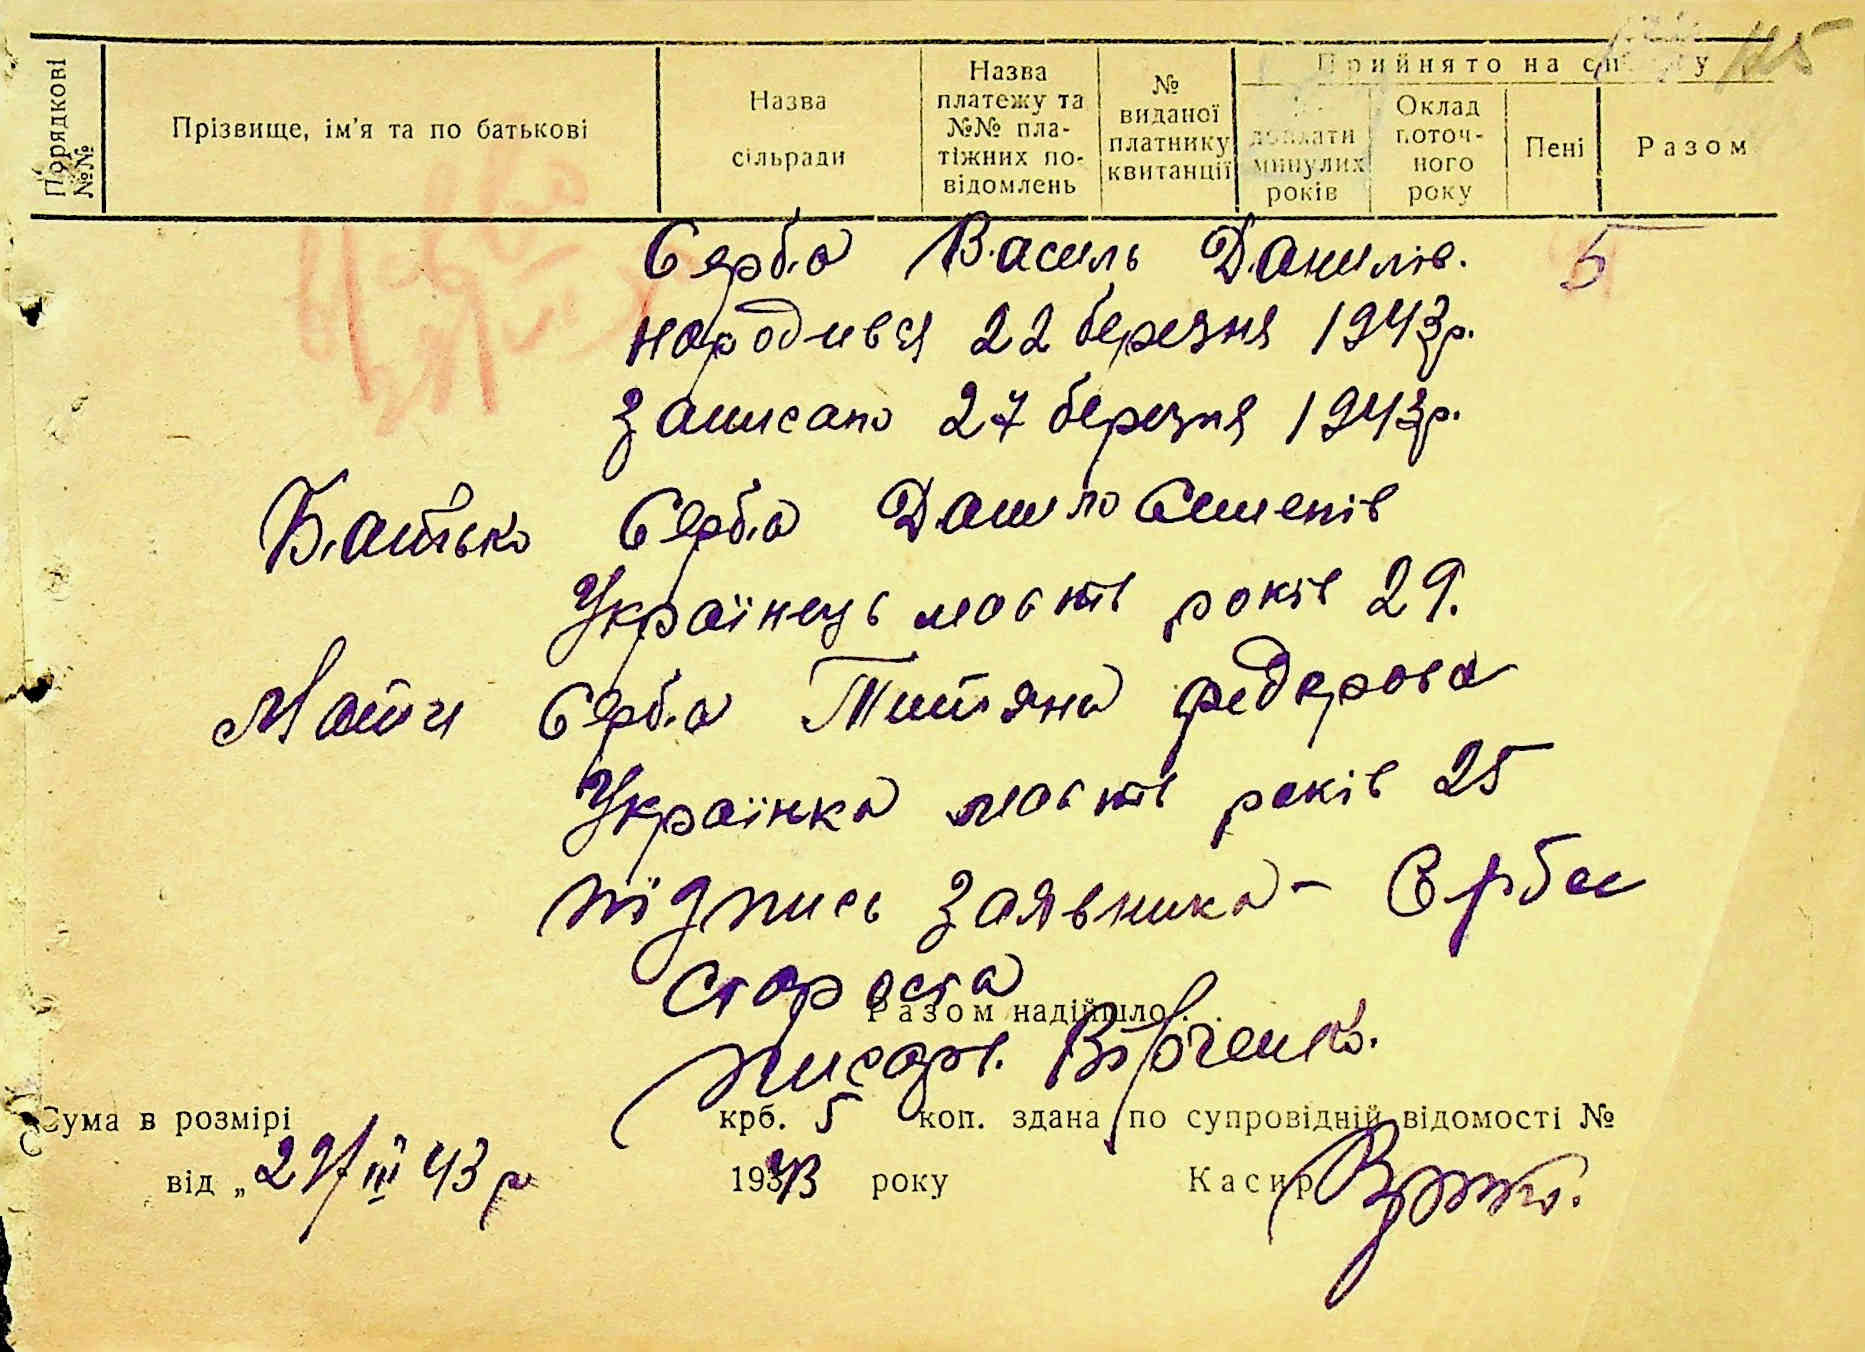 Порядкові №№
Прізвище, ім'я та по батькові
Назва сільради
Назва платежу та №№ платіжних повідомлень
№ виданої платнику квитанції
Прийнято на
доплати минулих років
Оклад поточного року
Пені
Разом
Серба Василь Данилів. 5
народився 22 березня 1943р.
Записано 27 березня 1943р.
Батько Серба Данило Семенів
Українець маєть років 29.
Мати Серба Титяна Федорова
Українка маєть років 25
підпись заявника - Серба
Староста
Разом надійшло
писарь.
Сума в розмірі крб. 5 коп. здана по супровідній відомості №
від „ 27/III 43 р 1943 року Касир